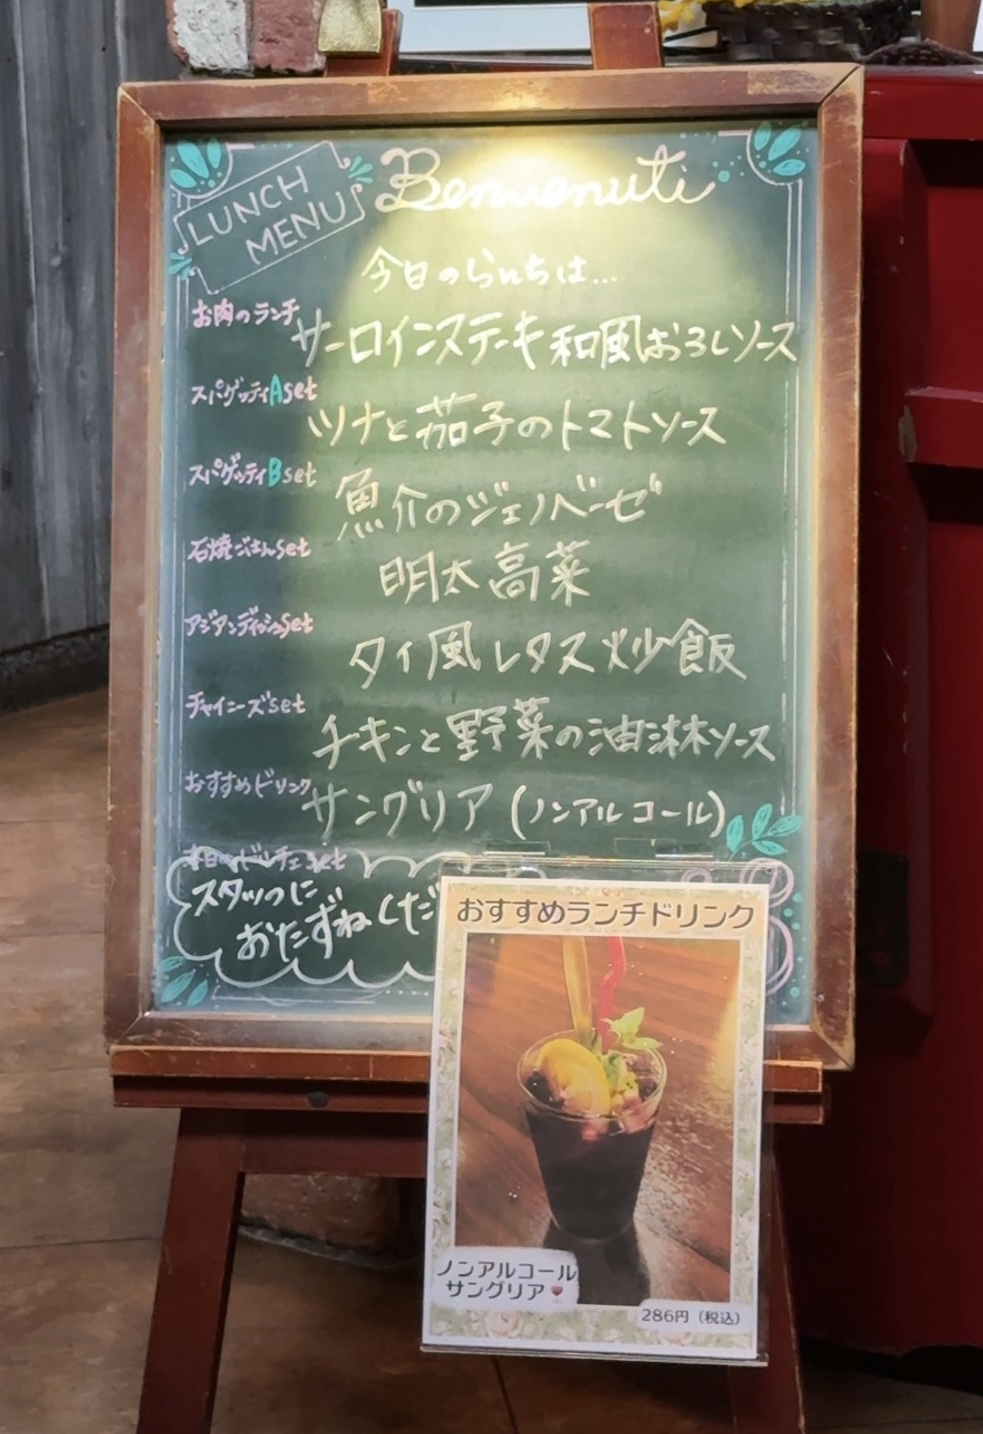 LUNCH
MENU
Benvenuti
今日のらんちは...
お肉のランチ
サーロインステーキ和風おろしソース
スパゲッティAset
ツナと茄子のトマトソース
スパゲッティBset
魚介のジェノベーゼ
石焼ごはんset
明太高菜
アジアンディッシュset
タイ風レタス炒飯
チャイニーズset
チキンと野菜の油淋ソース
おすすめドリンク
サングリア (ノンアルコール)
本日のドルチェset
スタッフに
おたずねくだ
おすすめランチドリンク
ノンアルコール
サングリア
286円 (税込)